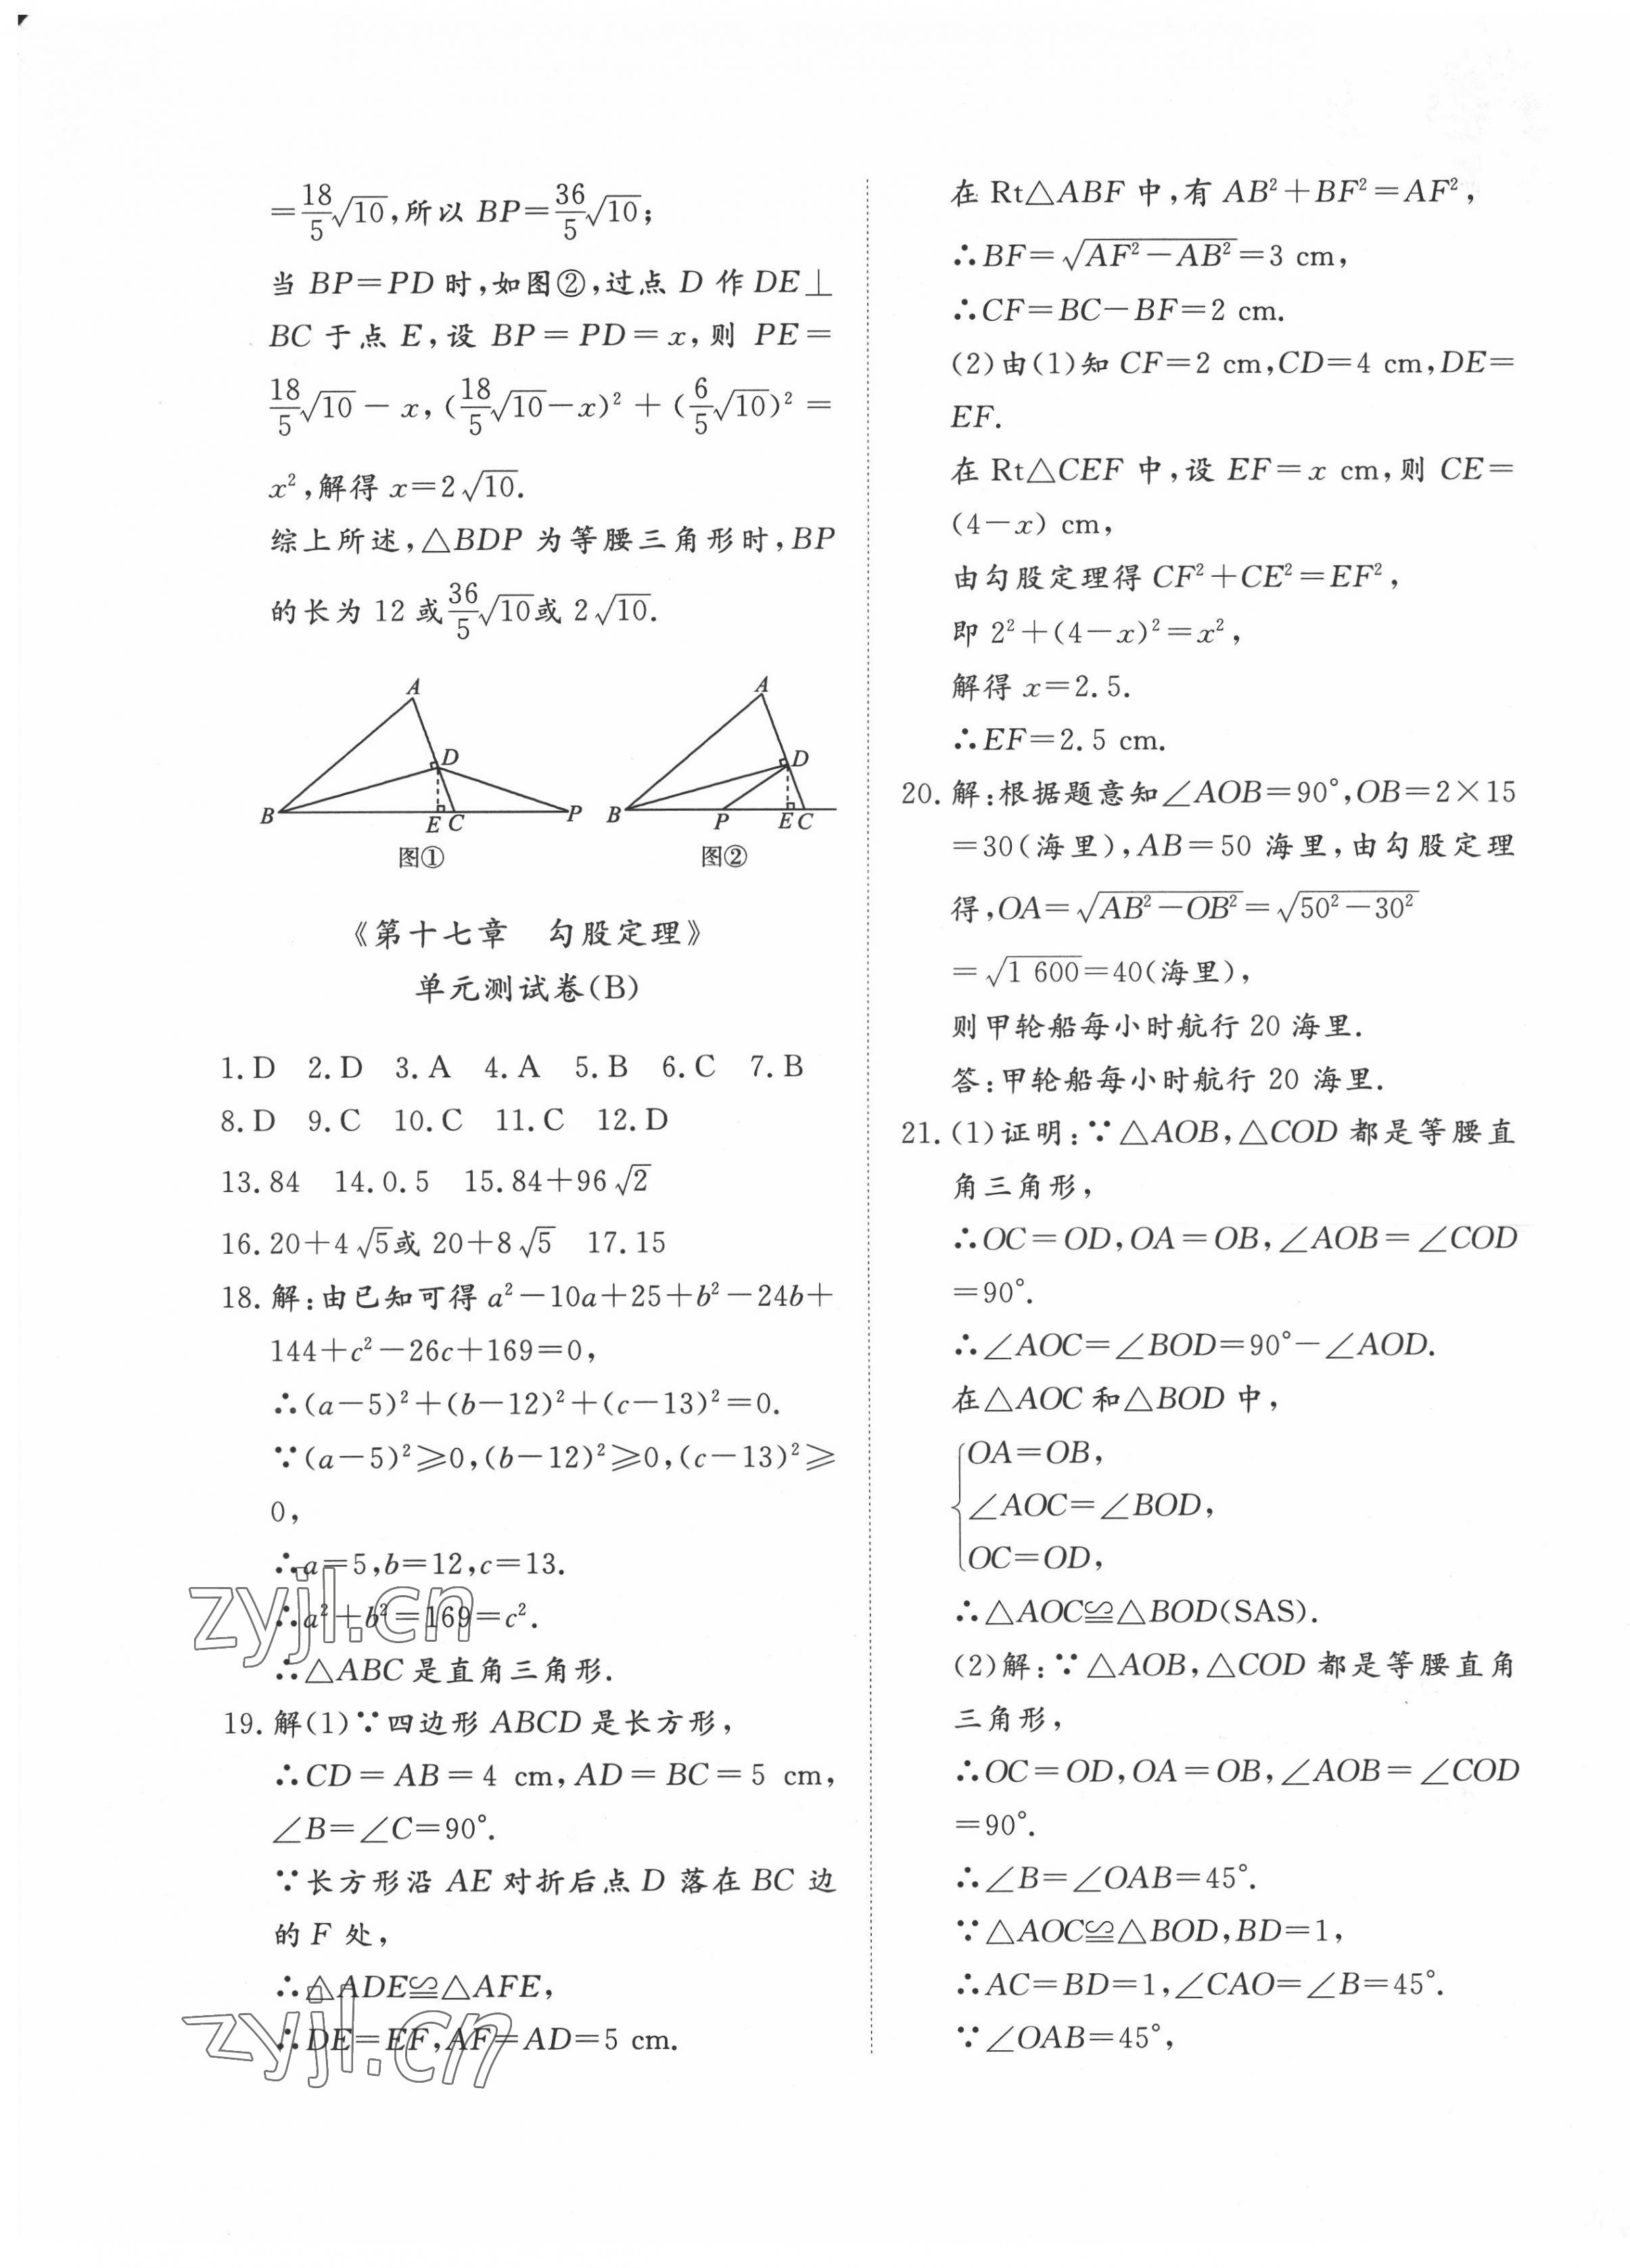 =18/5√10,所以 BP=36/5√10;
当 BP=PD 时,如图②,过点 D 作 DE⊥
BC 于点 E,设 BP=PD=x,则 PE=
18/5√10-x,(18/5√10-x)²+(6/5√10)²=
x²,解得 x=2√10.
综上所述,△BDP 为等腰三角形时,BP
的长为 12 或36/5√10或 2√10.
A
D
B
E C
P
图①
A
D
B
P
E C
图②
《第十七章 勾股定理》
单元测试卷(B)
1.D 2.D 3.A 4.A 5.B 6.C 7.B
8.D 9.C 10.C 11.C 12.D
13.84 14.0.5 15.84+96√2
16.20+4√5或 20+8√5 17.15
18.解:由已知可得 a²-10a+25+b²-24b+
144+c²-26c+169=0,
∴(a-5)²+(b-12)²+(c-13)²=0.
∵(a-5)²≥0,(b-12)²≥0,(c-13)²≥
0,
∴a=5,b=12,c=13.
∴a²+b²=169=c².
∴△ABC 是直角三角形.
19.解(1)∵四边形 ABCD 是长方形,
∴CD=AB=4 cm,AD=BC=5 cm,
∠B=∠C=90°.
∵长方形沿 AE 对折后点 D 落在 BC 边
的 F 处,
∴△ADE≌△AFE,
∴DE=EF,AF=AD=5 cm.
zyjl.cn
zyjl.cn
在 Rt△ABF 中,有 AB²+BF²=AF²,
∴BF=√(AF²-AB²)=3 cm,
∴CF=BC-BF=2 cm.
(2)由(1)知 CF=2 cm,CD=4 cm,DE=
EF.
在 Rt△CEF 中,设 EF=x cm,则 CE=
(4-x) cm,
由勾股定理得 CF²+CE²=EF²,
即 2²+(4-x)²=x²,
解得 x=2.5.
∴EF=2.5 cm.
20.解:根据题意知∠AOB=90°,OB=2×15
=30(海里),AB=50 海里,由勾股定理
得,OA=√(AB²-OB²)=√(50²-30²)
=√1 600=40(海里),
则甲轮船每小时航行 20 海里.
答:甲轮船每小时航行 20 海里.
21.(1)证明:∵△AOB,△COD 都是等腰直
角三角形,
∴OC=OD,OA=OB,∠AOB=∠COD
=90°.
∴∠AOC=∠BOD=90°-∠AOD.
在△AOC 和△BOD 中,
OA=OB,
∠AOC=∠BOD,
OC=OD,
∴△AOC≌△BOD(SAS).
(2)解:∵△AOB,△COD 都是等腰直角
三角形,
∴OC=OD,OA=OB,∠AOB=∠COD
=90°.
∴∠B=∠OAB=45°.
∵△AOC≌△BOD,BD=1,
∴AC=BD=1,∠CAO=∠B=45°.
∵∠OAB=45°,